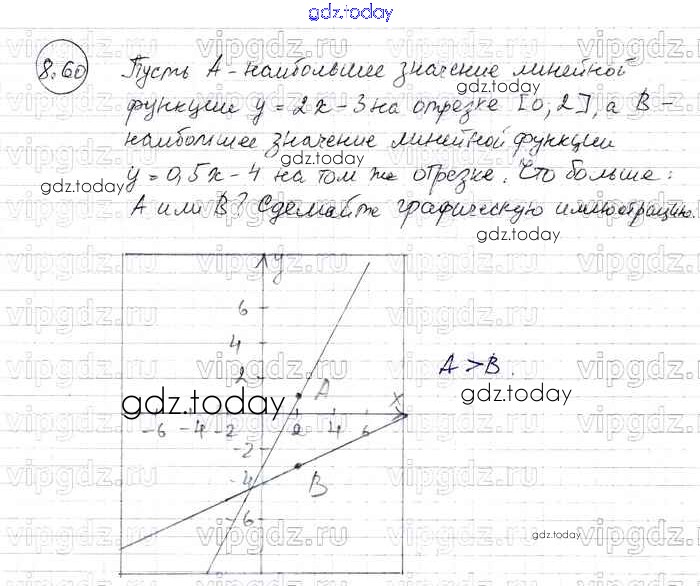 gdz.today
8.60
Пусть A - наибольшее значение линейной
функции y = 2x - 3 на отрезке [0, 2], а B -
наибольшее значение линейной функции
gdz.today
y = 0,5x - 4 на том же отрезке. Что больше:
gdz.today
A или B? Сделайте графическую иллюстрацию.
gdz.today
y
6
4
2
A > B.
A
gdz.today
gdz.today
x
-6 -4 -2 2 4 6
-2
-4
B
-6
gdz.today
vipgdz.ru